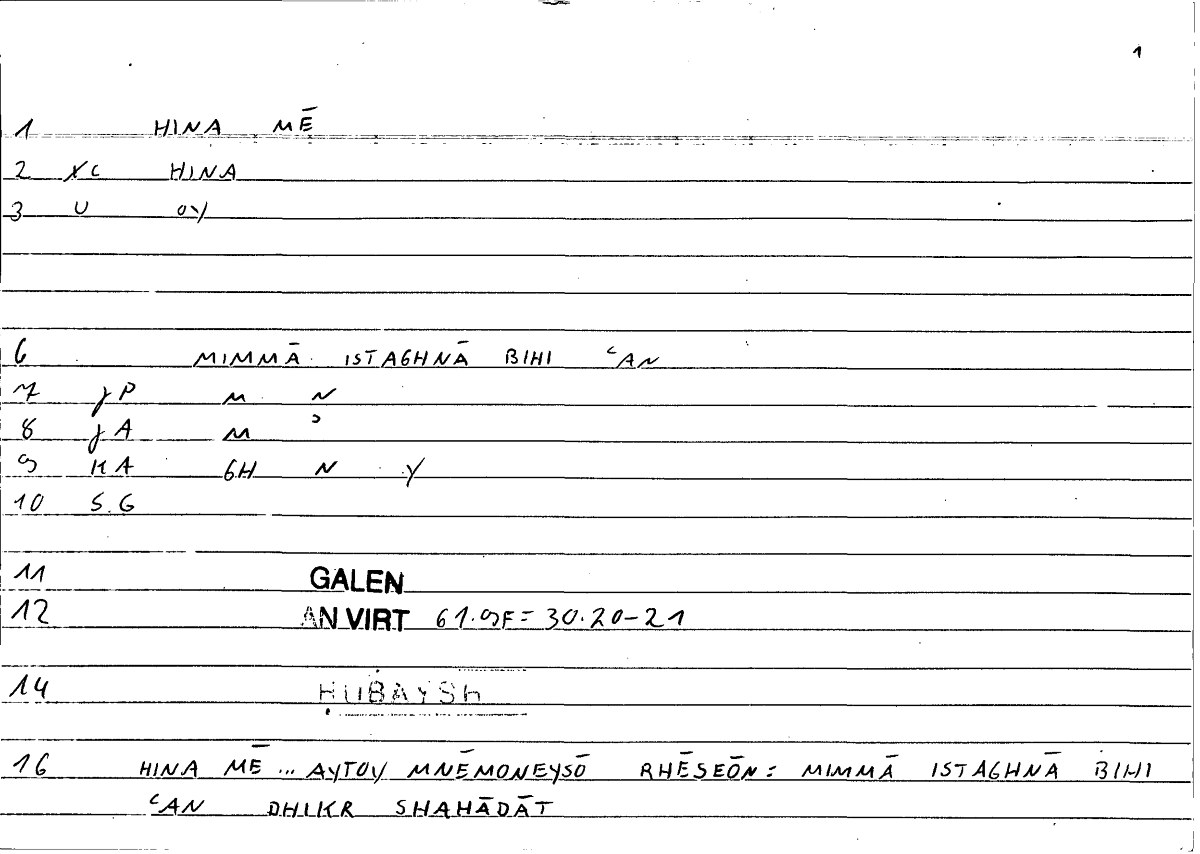 1
1 HINA MĒ
2 XC HINA
3 U OY
6 MIMMĀ ISTAGHNĀ BIHI ʿAN
7 JP M N
8 JA M ɔ
9 KA GH N Y
10 S.G
11 GALEN
12 AN VIRT 61.9F = 30.20-21
14 ḤUBAYSh
16 HINA MĒ ... AYTOY MNĒMONEYSŌ RHĒSEŌN: MIMMĀ ISTAGHNĀ BIHI
ʿAN DHIKR SHAHĀDĀT